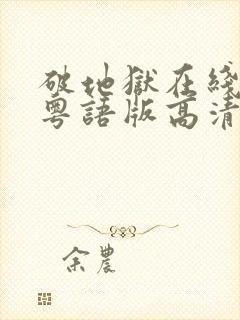 破地獄在綫
粵語版高清
余農